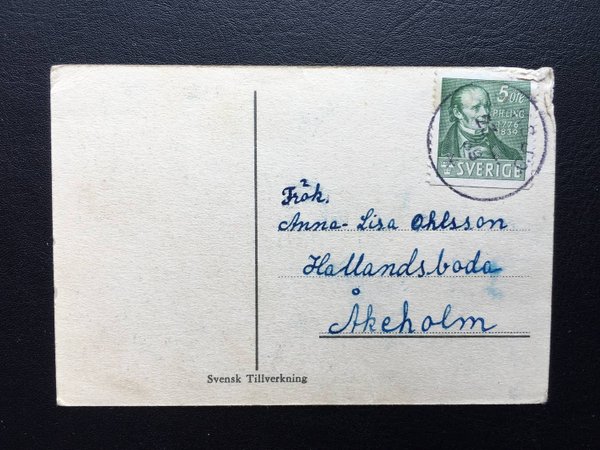 5 ÖRE
P.H.LING
1776
1839
SVERIGE
Frök.
Anna-Lisa Ohlsson
Hallandsboda
Åkeholm
Svensk Tillverkning